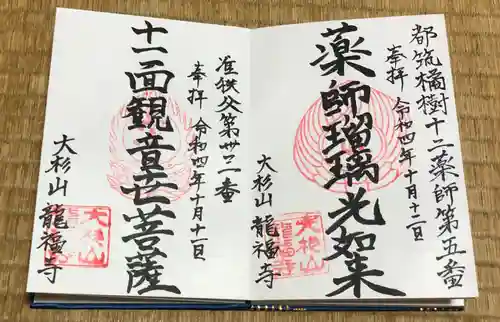 都筑橘樹十二薬師第五番
奉拝 令和四年十月十二日
薬師瑠璃光如来
大杉山 龍福寺
大杉山
龍福寺
准秩父第廿二番
奉拝 令和四年十月十二日
十一面観音世菩薩
大杉山 龍福寺
大杉山